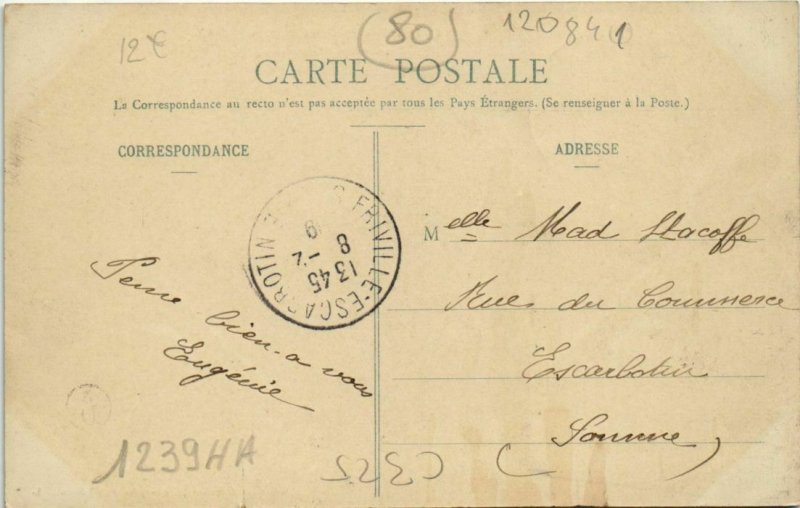 12€
(80)
120841
CARTE POSTALE
La Correspondance au recto n'est pas acceptée par tous les Pays Étrangers. (Se renseigner à la Poste.)
CORRESPONDANCE
ADRESSE
FRIVILLE-ESCARBOTIN
1345
8
Melle Mad
Rue du Commerce
Escarbotin
(Somme)
bien a vous
Eugénie
1239HA